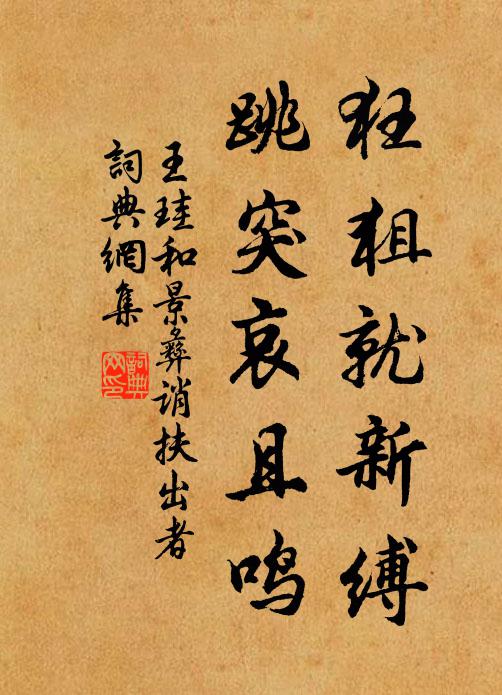 狂狙就新缚
跳突哀且鸣
王珪和景彝诮扶出者
詞典網集
詞典网印